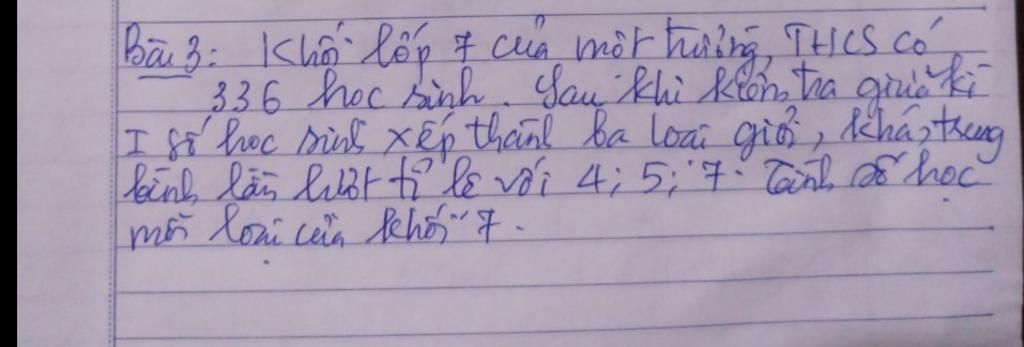 Bài 3: Khối lớp 7 của một trường THCS có
336 học sinh. Sau khi kiểm tra giữa kì
I số học sinh xếp thành ba loại giỏi, khá, trung
bình lần lượt tỉ lệ với 4; 5; 7. Tính số học
mỗi loại của khối 7.